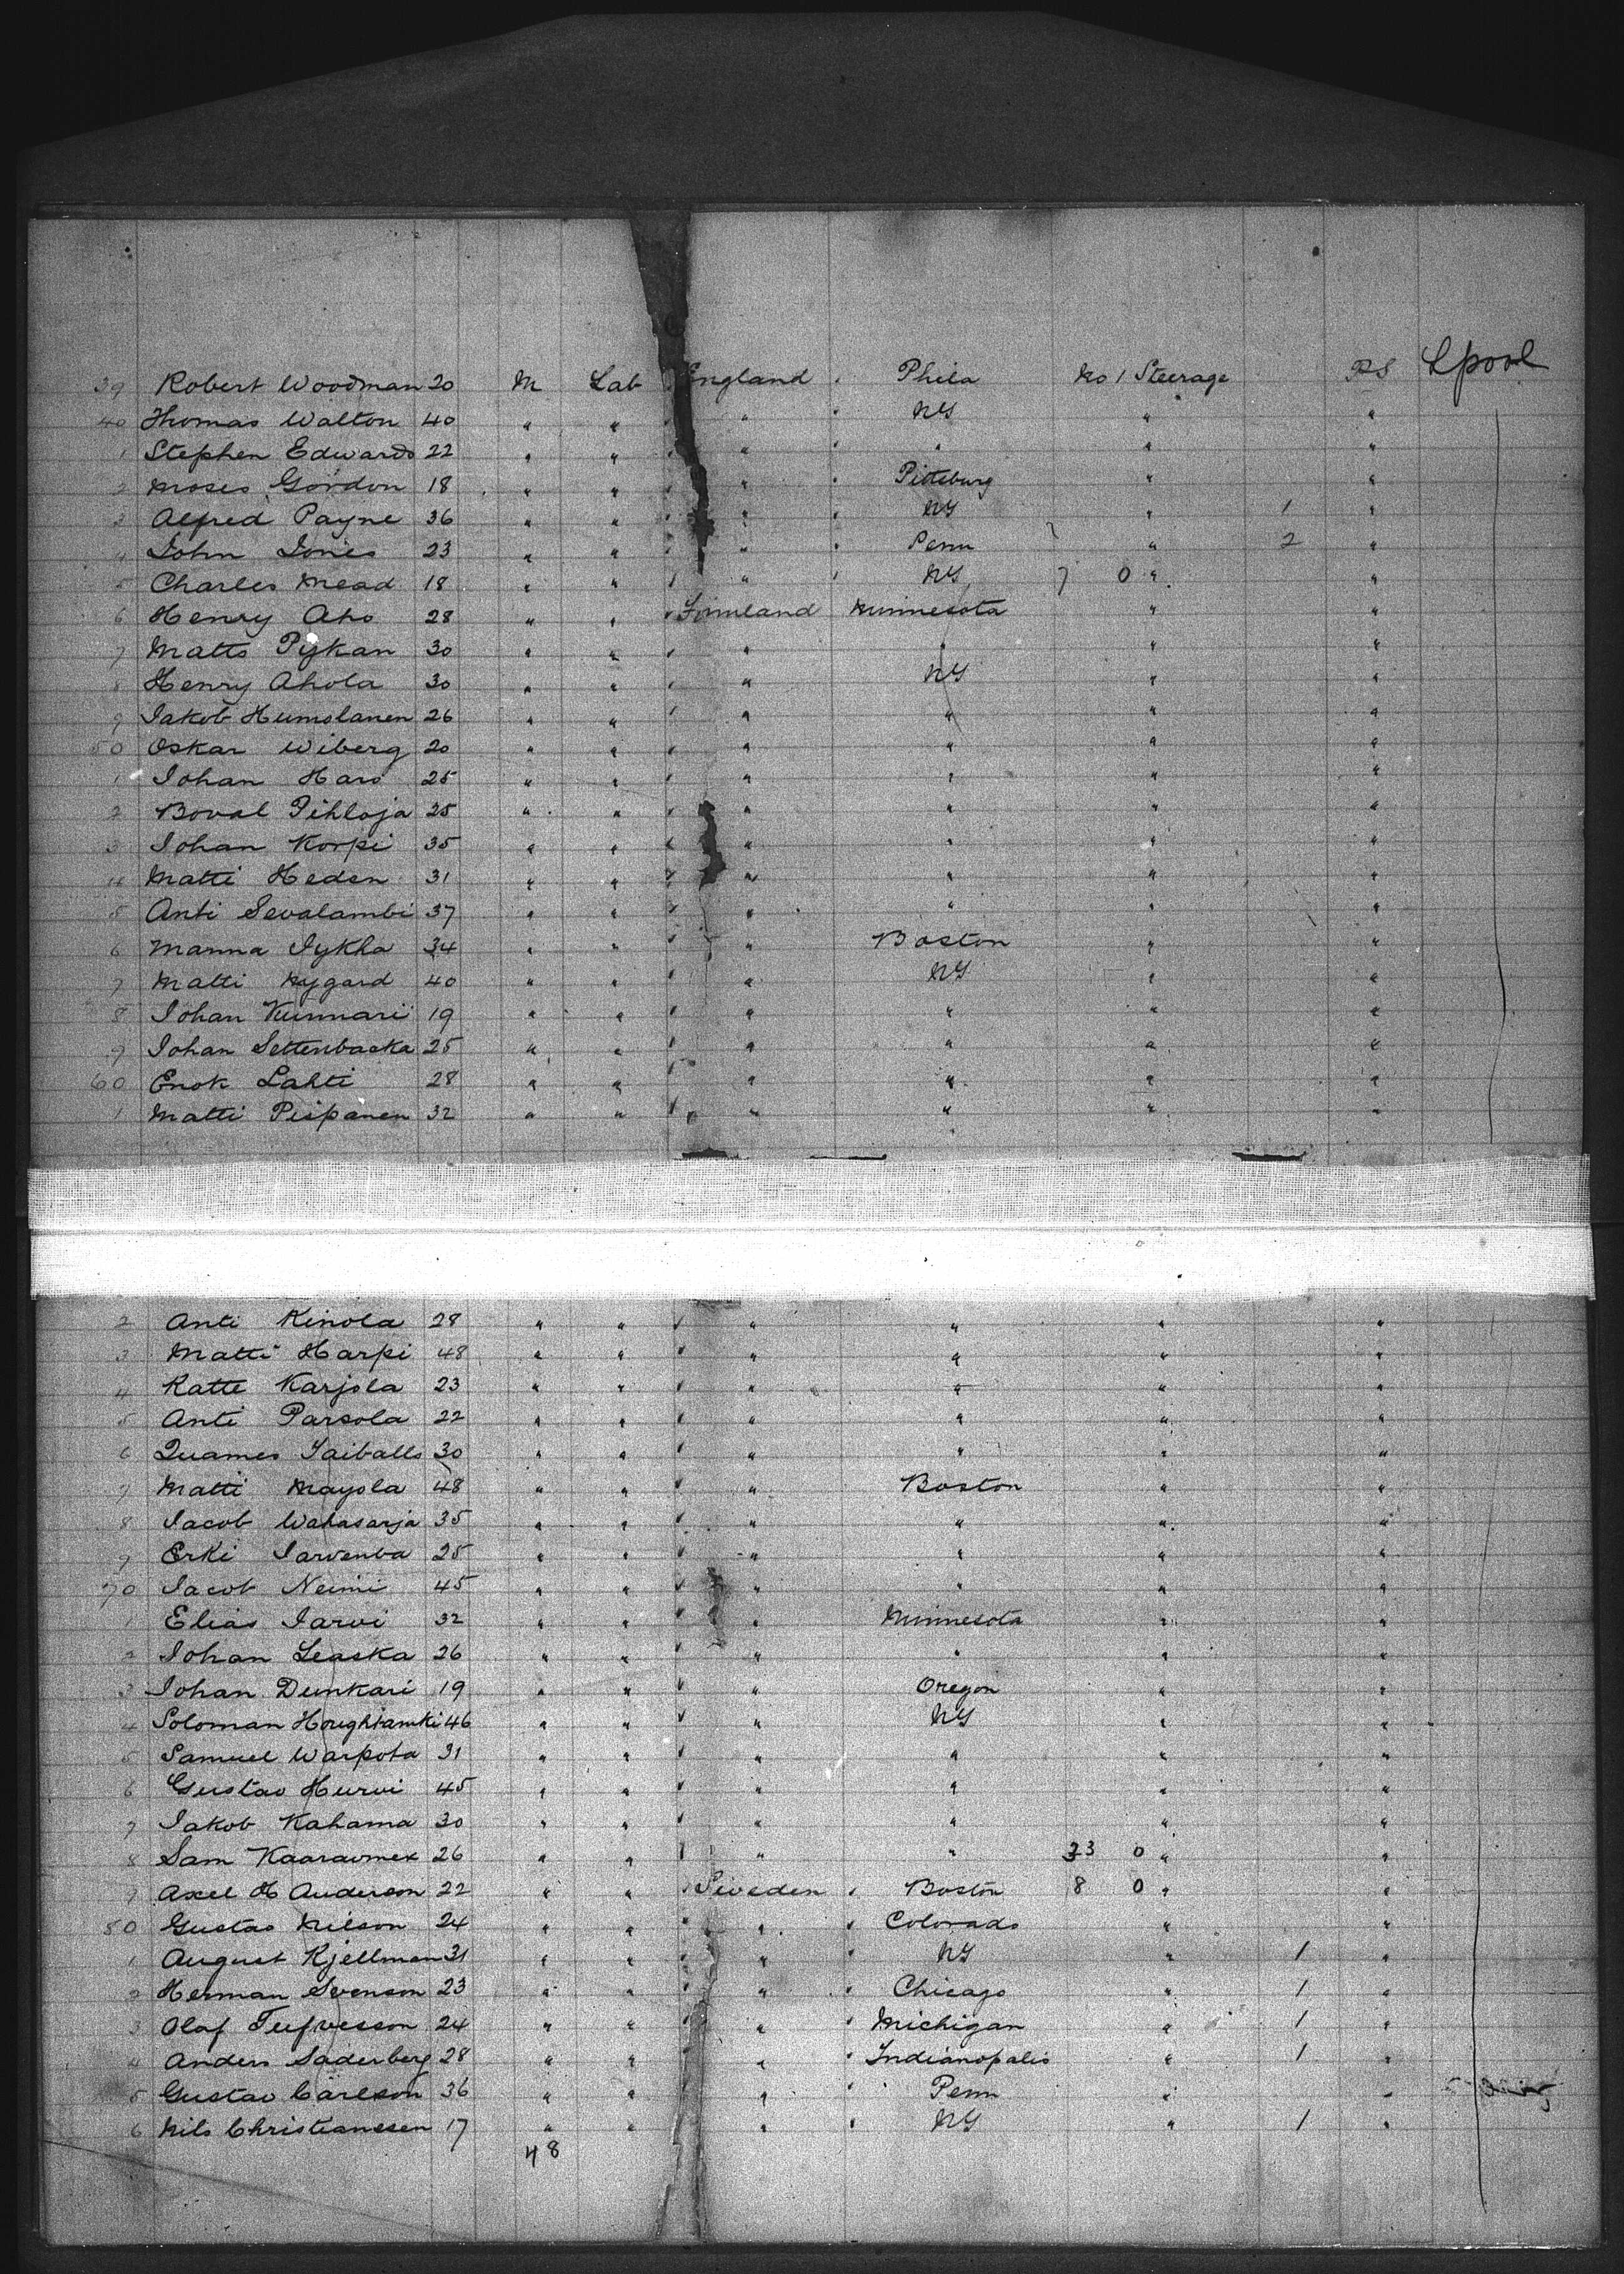 39 Robert Woodman 20 M Lab England Phila No 1 Steerage PS Lpool
40 Thomas Walton 40 " " " NY " "
1 Stephen Edwards 22 " " " " " "
2 Moses Gordon 18 " " " Pittsburg " "
3 Alfred Payne 36 " " " NY " 1 "
4 John Jones 23 " " " Penn " 2 "
5 Charles Mead 18 " " " NY 7 0 " "
6 Henry Aho 28 " " Finnland Minnesota " "
7 Matts Pykan 30 " " " " " "
8 Henry Ahola 30 " " " NY " "
9 Jakob Humolanen 26 " " " " " "
50 Oskar Wiberg 20 " " " " " "
1 Johan Haro 25 " " " " " "
2 Boval Pihloja 25 " " " " " "
3 Johan Korpi 35 " " " " " "
4 Matti Heden 31 " " " " " "
5 Anti Sevalambi 37 " " " " " "
6 Manna Jykha 34 " " " Boston " "
7 Matti Nygard 40 " " " NY " "
8 Johan Kunnari 19 " " " " " "
9 Johan Settenbacka 25 " " " " " "
60 Enok Lahti 28 " " " " " "
1 Matti Pispanen 32 " " " " " "
2 Anti Kinola 28 " " " " " "
3 Matti Harpi 48 " " " " " "
4 Katte Karjola 23 " " " " " "
5 Anti Parsola 22 " " " " " "
6 30 " " " " " "
7 Matti Mayola 48 " " " Boston " "
8 Jacob Watasarja 35 " " " " " "
9 Erki Jarvenba 25 " " " " " "
70 Jacob Neimi 45 " " " " " "
1 Elias Jarvi 32 " " " Minnesota " "
2 Johan Leaska 26 " " " " " "
3 Johan Dunkari 19 " " " Oregon " "
4 Soloman 46 " " " NY " "
5 Samuel Warpota 31 " " " " " "
6 Gustav Hurvi 45 " " " " " "
7 Jakob Kahama 30 " " " " " "
8 Sam 26 " " " " 33 0 " "
9 Axel H Anderson 22 " " Sweden Boston 8 0 " "
80 Gustav Nilson 24 " " " Colorado " "
1 August Kjellman 31 " " " NY " 1 "
2 Herman Svenson 23 " " " Chicago " 1 "
3 Olaf Tufvesson 24 " " " Michigan " 1 "
4 Anders Saderberg 28 " " " Indianopalis " 1 "
5 Gustav Carlson 36 " " " Penn " "
6 Nils Christianssen 17 " " " NY " 1 "
48